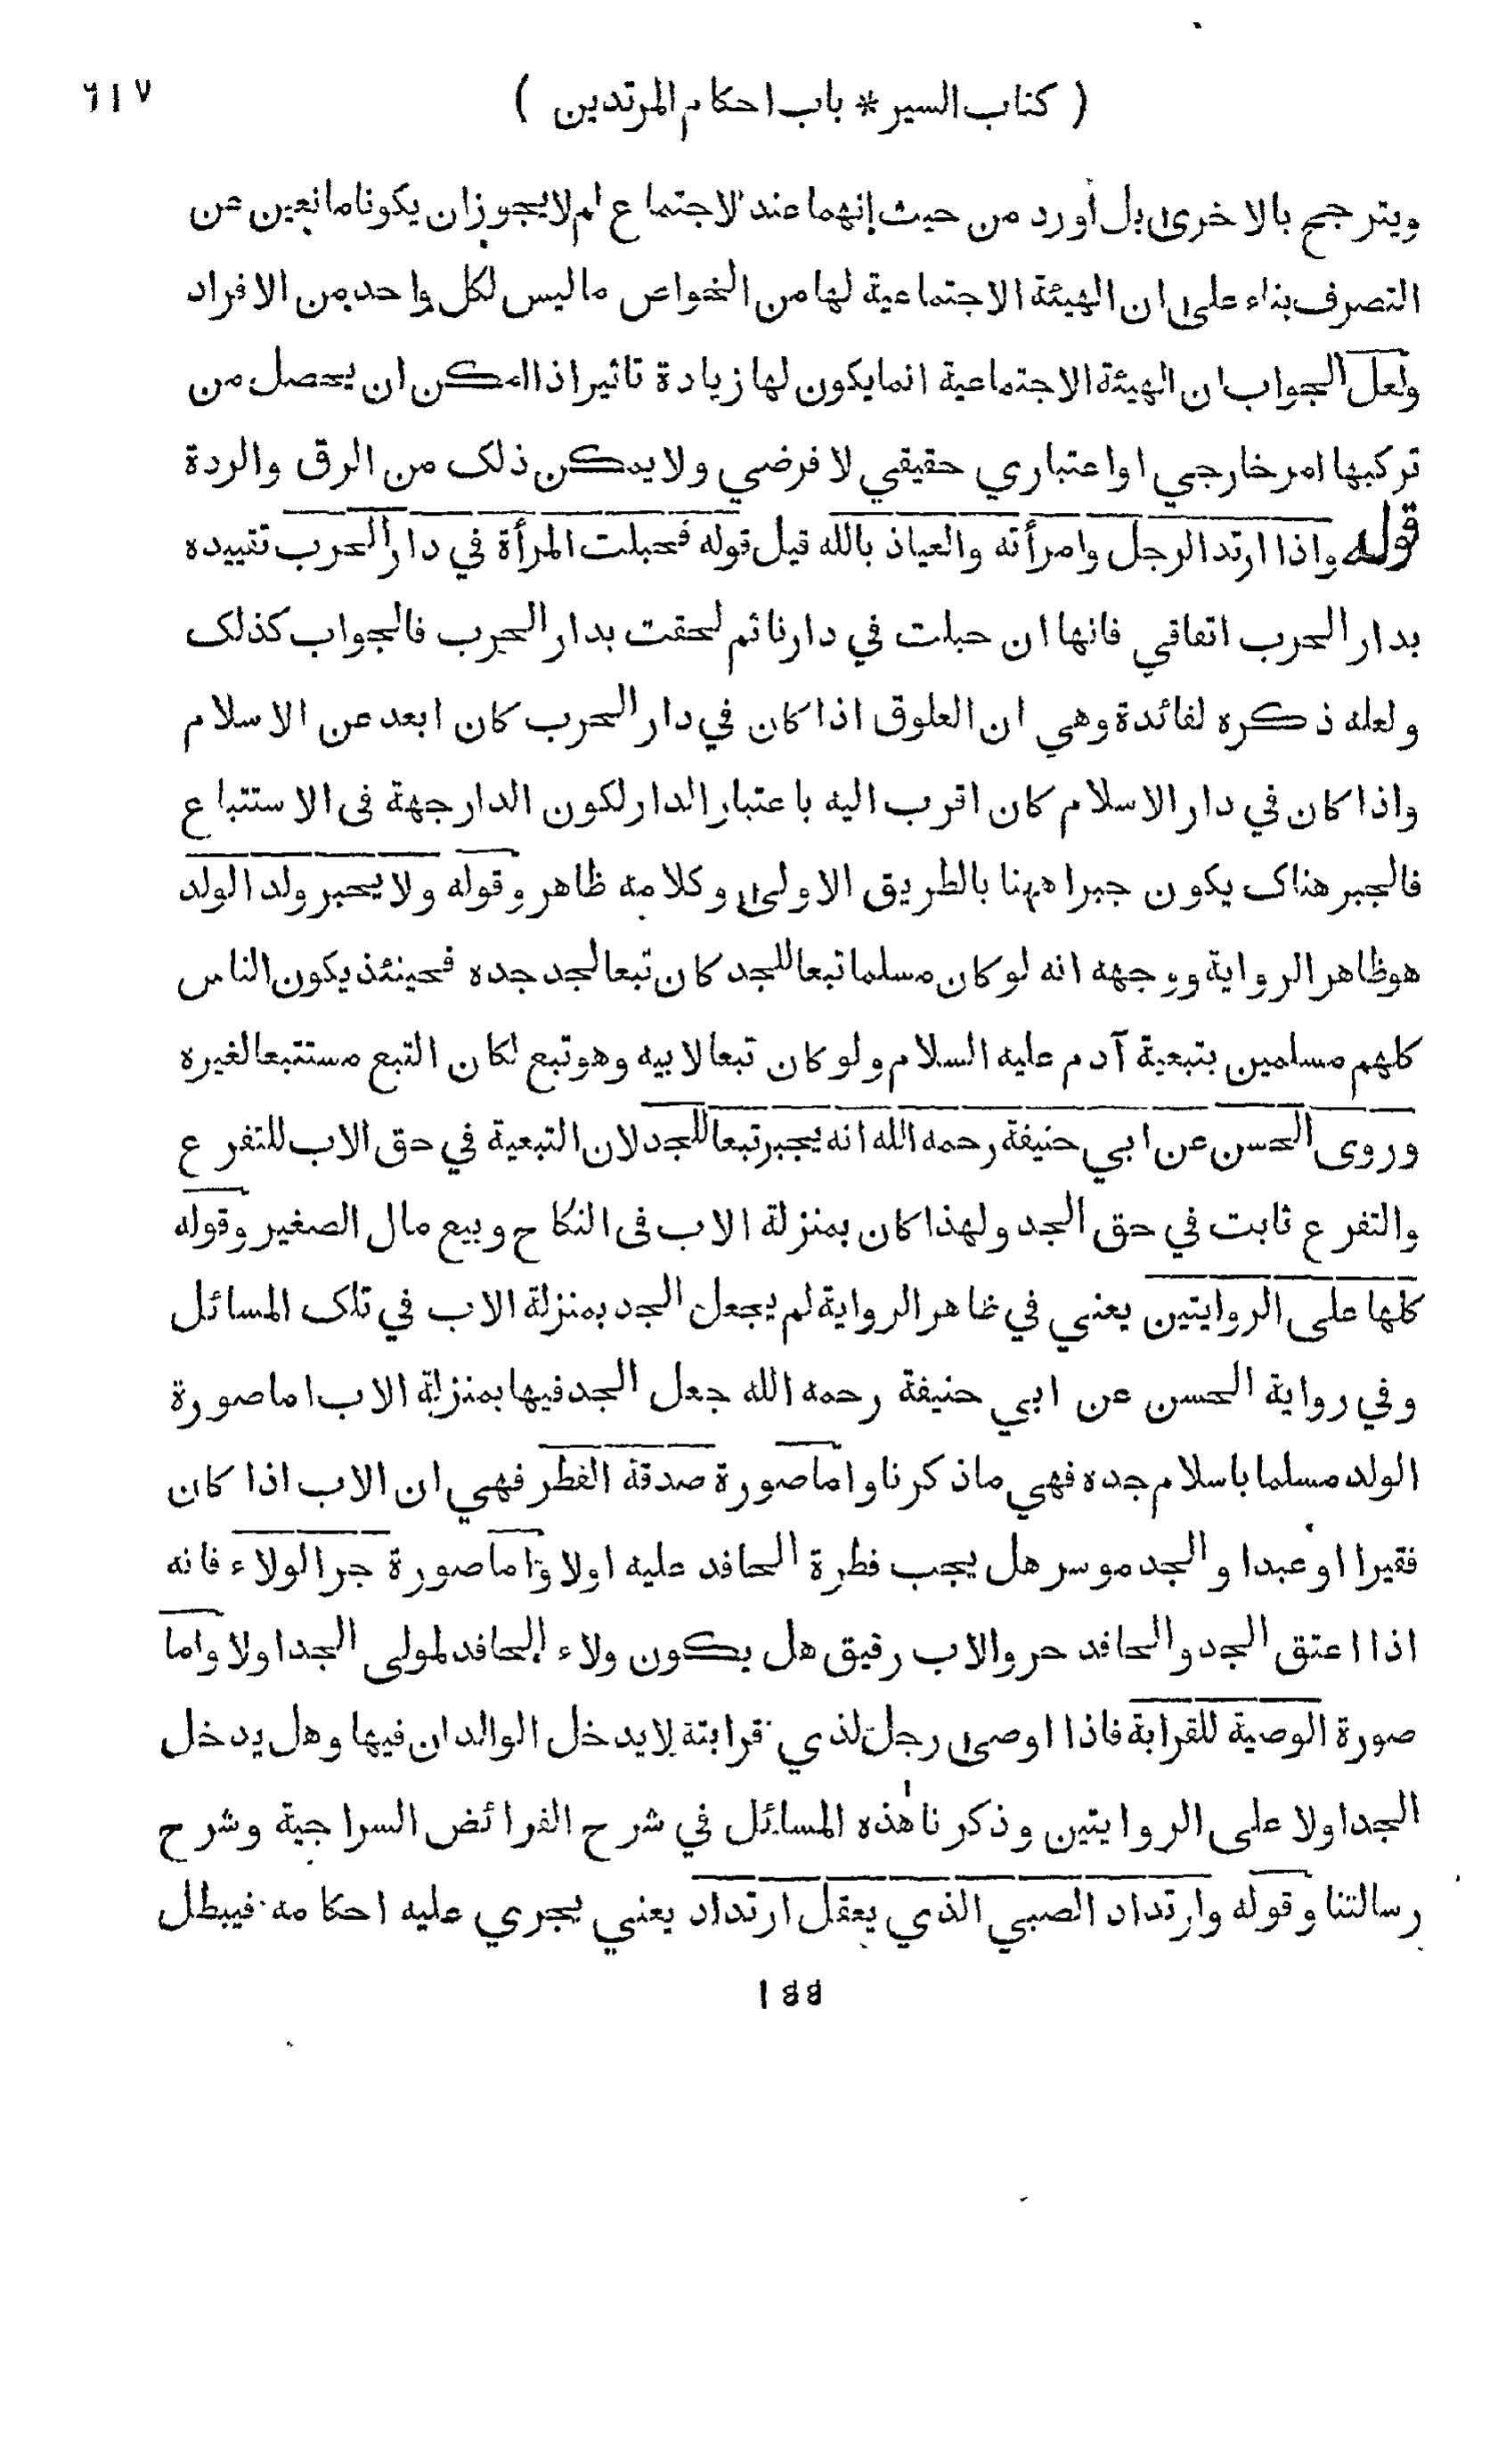 ( كتاب السير * باب احكام المرتدين ) ٦١٧
ويترجح بالاخرى بل أورد من حيث إنهما عند الاجتماع لم لا يجوز ان يكونا مانعين عن
التصرف بناء على ان الهيئة الاجتماعية لها من الخواص ما ليس لكل واحد من الافراد
ولعل الجواب ان الهيئة الاجتماعية انما يكون لها زيادة تاثير اذا امكن ان يحصل من
تركبها امر خارجي او اعتباري حقيقي لا فرضي ولا يمكن ذلك من الرق والردة
قوله واذا ارتد الرجل وامرأته والعياذ بالله قيل قوله فحبلت المرأة في دار الحرب تقييده
بدار الحرب اتفاقي فانها ان حبلت في دارنا ثم لحقت بدار الحرب فالجواب كذلك
ولعله ذكره لفائدة وهي ان العلوق اذا كان في دار الحرب كان ابعد عن الاسلام
واذا كان في دار الاسلام كان اقرب اليه باعتبار الدار لكون الدار جهة فى الاستتباع
فالجبر هناك يكون جبرا ههنا بالطريق الاولى وكلامه ظاهر وقوله ولا يجبر ولد الولد
هو ظاهر الرواية ووجهه انه لو كان مسلما تبعا للجد كان تبعا لجد جده فحينئذ يكون الناس
كلهم مسلمين بتبعية آدم عليه السلام ولو كان تبعا لابيه وهو تبع لكان التبع مستتبعا لغيره
وروى الحسن عن ابي حنيفة رحمه الله انه يجبر تبعا للجد لان التبعية في حق الاب للتفرع
والتفرع ثابت في حق الجد ولهذا كان بمنزلة الاب فى النكاح وبيع مال الصغير وقوله
كلها على الروايتين يعني في ظاهر الرواية لم يجعل الجد بمنزلة الاب في تلك المسائل
وفي رواية الحسن عن ابي حنيفة رحمه الله جعل الجد فيها بمنزلة الاب اما صورة
الولد مسلما باسلام جده فهي ما ذكرنا واما صورة صدقة الفطر فهي ان الاب اذا كان
فقيرا او عبدا والجد موسر هل يجب فطرة الحافد عليه اولا واما صورة جر الولاء فانه
اذا اعتق الجد والحافد حر والاب رقيق هل يكون ولاء الحافد لمولى الجد اولا واما
صورة الوصية للقرابة فاذا اوصى رجل لذي قرابته لا يدخل الوالدان فيها وهل يدخل
الجد اولا على الروايتين وذكرنا هذه المسائل في شرح الفرائض السراجية وشرح
رسالتنا وقوله وارتداد الصبي الذي يعقل ارتداد يعني يجري عليه احكامه فيبطل